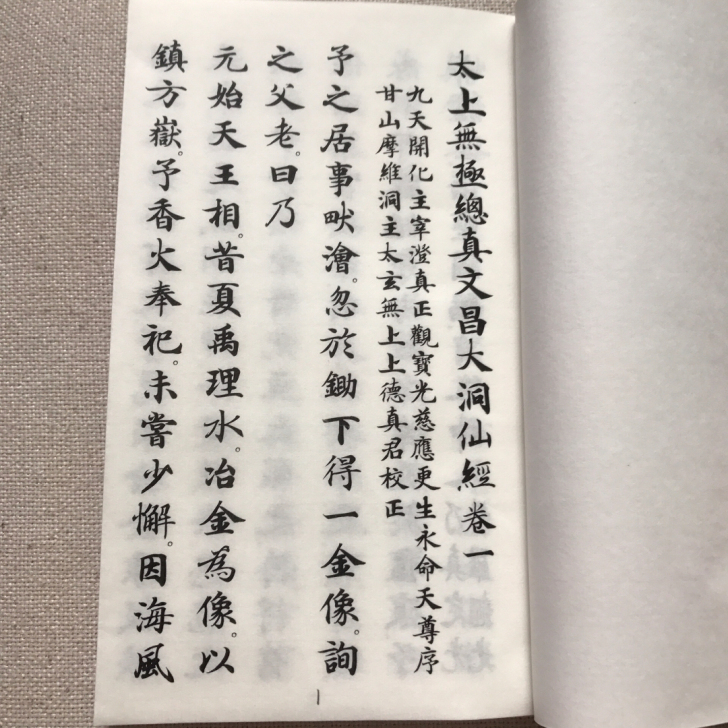 太上無極總真文昌大洞仙經卷一
九天開化主宰澄真正觀寶光慈應更生永命天尊序
甘山摩維洞主太玄無上上德真君校正
予之居事畎澮。忽於鋤下得一金像。詢
之父老。曰乃
元始天王相。昔夏禹理水。冶金為像。以
鎮方嶽。予香火奉祀。未嘗少懈。因海風
1